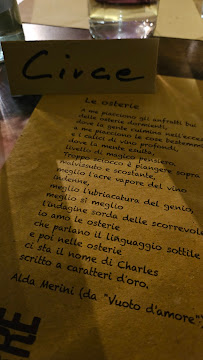 Circe
Le osterie
a me piacciono gli anfratti bui
delle osterie dormienti,
dove la gente culmina nell'ecce
a me piacciono le cose bestemm
e i calici di vino profondi,
dove la mente esulta,
livello di magico pensiero.
troppo sciocco è piangere sopra
malvissuto e scostante,
meglio l'acre vapore del vino
indenne,
meglio l'ubriacatura del genio,
meglio sì meglio
l'indagine sorda delle scorrevole
io amo le osterie
che parlano il linguaggio sottile
e poi nelle osterie
ci sta il nome di Charles
scritto a caratteri d'oro.
Alda Merini (da "Vuoto d'amore")
RE